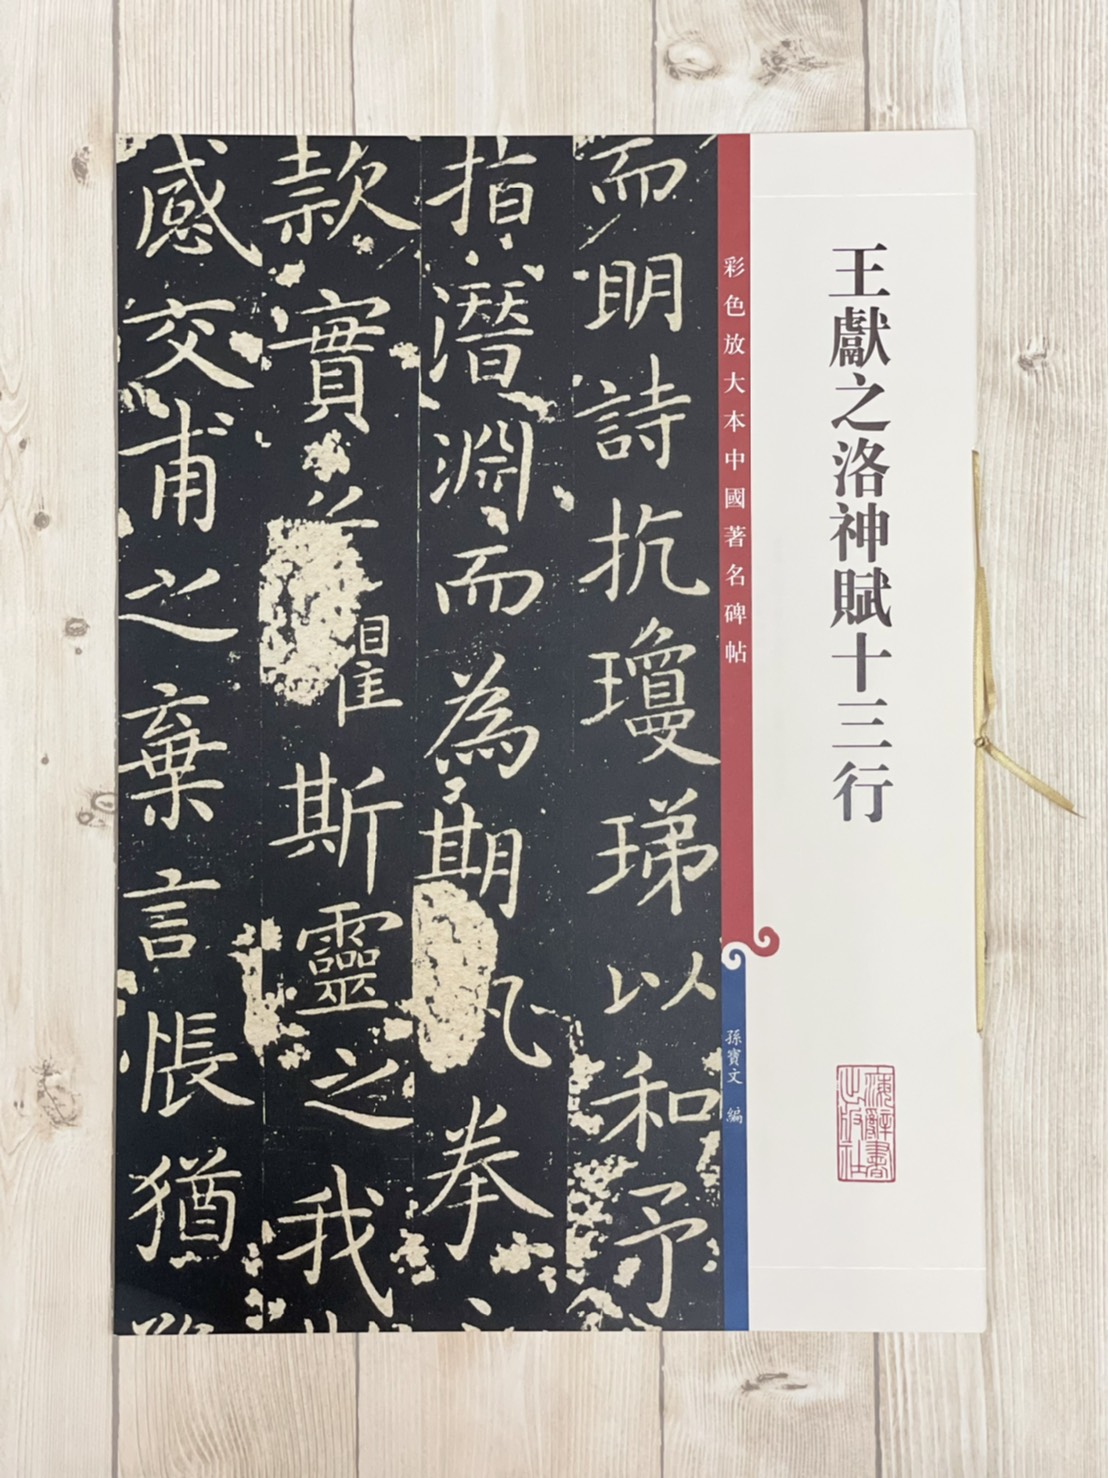 王獻之洛神賦十三行
彩色放大本中國著名碑帖
孫寶文 編
上海辭書
出版社
而明詩抗瓊珶以和予
指潛淵而為期執拳
款實兮懼斯靈之我
感交甫之棄言悵猶